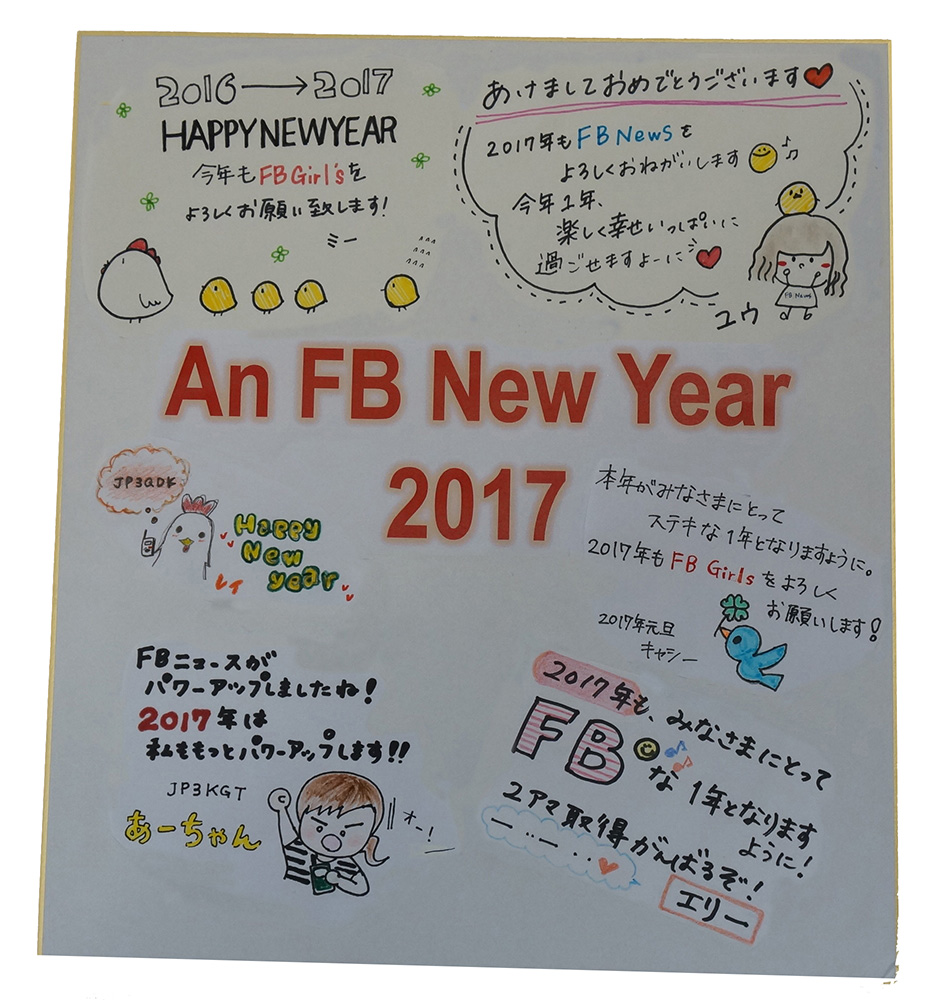 2016→2017
HAPPY NEW YEAR
今年もFB Girl'sを
よろしくお願い致します!
ミー
あけましておめでとうございます♥
2017年もFB Newsを
よろしくおねがいします
今年1年、
楽しく幸せいっぱいに
過ごせますよーに♥
FB News
ユウ
An FB New Year
2017
JP3QDK
Happy
New
year
レイ
本年がみなさまにとって
ステキな1年となりますように。
2017年もFB Girlsをよろしく
お願いします!
2017年元旦
キャシー
FBニュースが
パワーアップしましたね!
2017年は
私ももっとパワーアップします!!
JP3KGT
あーちゃん
オー!
2017年も、みなさまにとって
FBな1年となります
ように!
2アマ取得がんばるぞ!
エリー